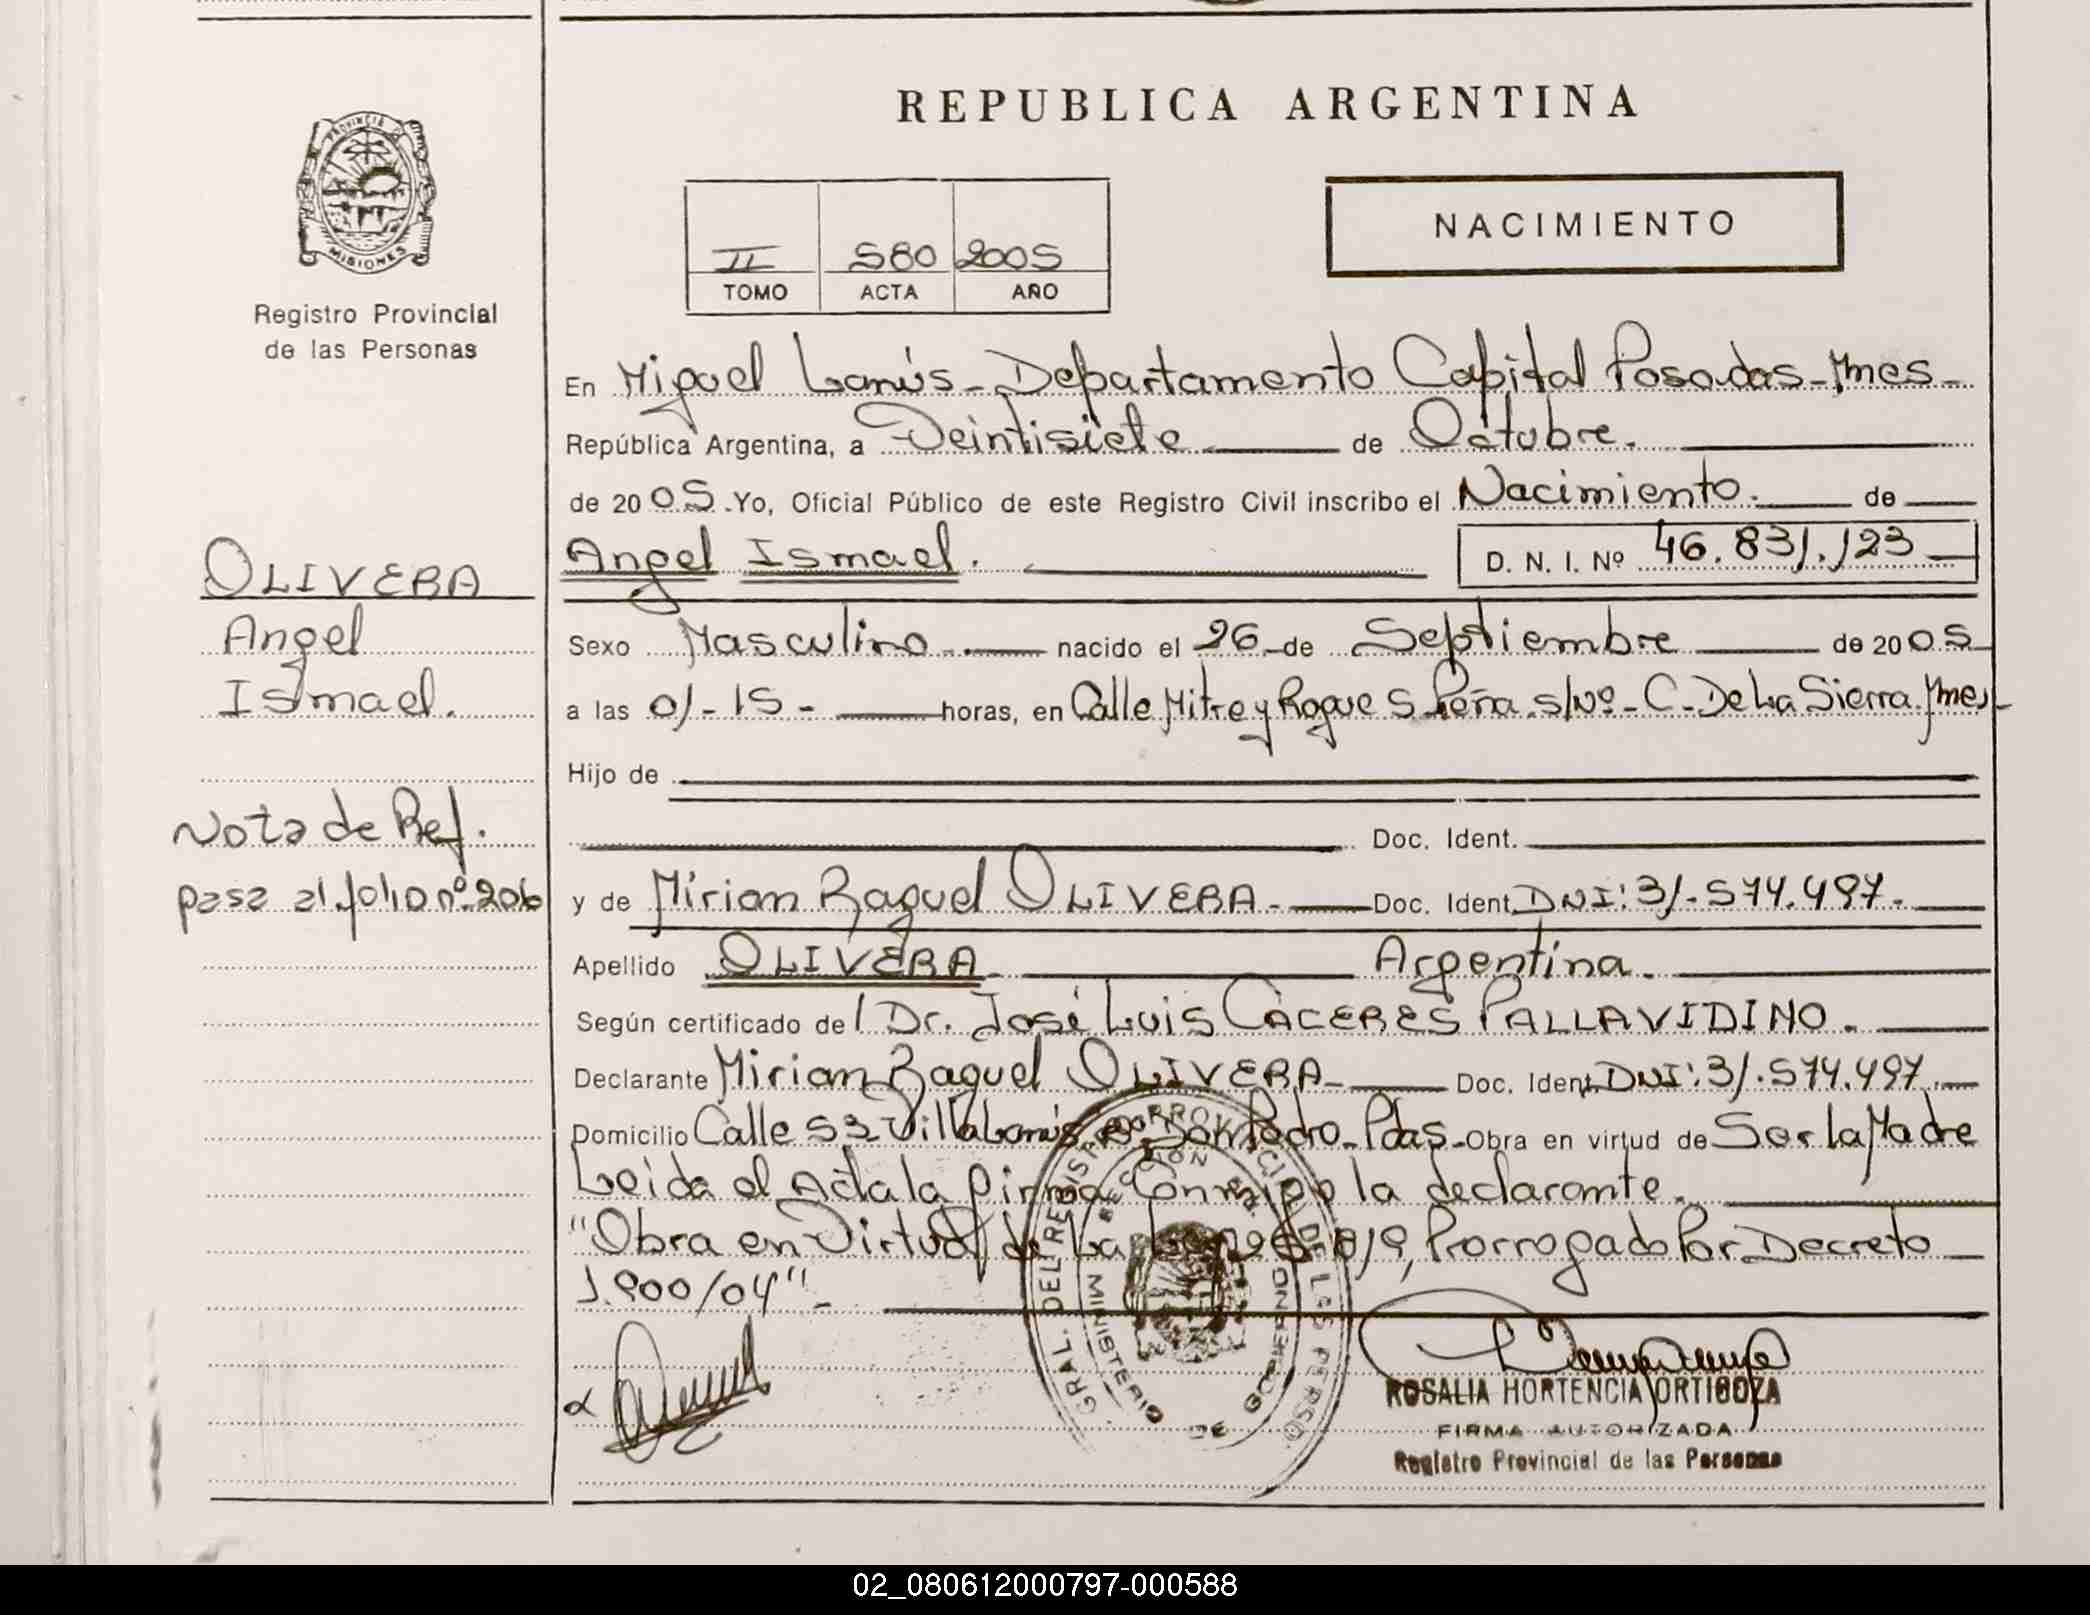 REPUBLICA ARGENTINA
NACIMIENTO
II 580 2005
TOMO ACTA AÑO
PROVINCIA DE
MISIONES
Registro Provincial
de las Personas
En Miguel Lanús - Departamento Capital Posadas - Mnes -
República Argentina, a Veintisiete de Octubre.
de 2005. Yo, Oficial Público de este Registro Civil inscribo el Nacimiento. de
Angel Ismael. D. N. I. Nº 46.831.123
OLIVERA
Angel
Ismael.
Sexo Masculino. nacido el 26 de Septiembre de 2005
a las 01-15- horas, en Calle Mitre y Roque S Peña s/Nº - C. De La Sierra Mnes -
Hijo de
Doc. Ident.
Nota de Ref.
pasa al folio nº 206
y de Mirian Raquel OLIVERA - Doc. Ident. DNI: 31.574.497.
Apellido OLIVERA Argentina.
Según certificado del Dr. José Luis CÁCERES PALLAVIDINO.
Declarante Mirian Raquel OLIVERA - Doc. Ident. DNI: 31.574.497.
Domicilio Calle 53 Villa Lanús Bº San Pedro - Pdas - Obra en virtud de Ser la Madre
Leida el Acta la firma Conmigo la declarante.
"Obra en Virtud de La Ley Prorrogado Por Decreto
1.900/04" -
GRAL. DEL REGISTRO PROVINCIAL DE LAS PERSO
MINISTERIO DE GOBIERNO
ROSALIA HORTENCIA ORTIGOZA
FIRMA AUTORIZADA
Registro Provincial de las Personas
02_080612000797-000588